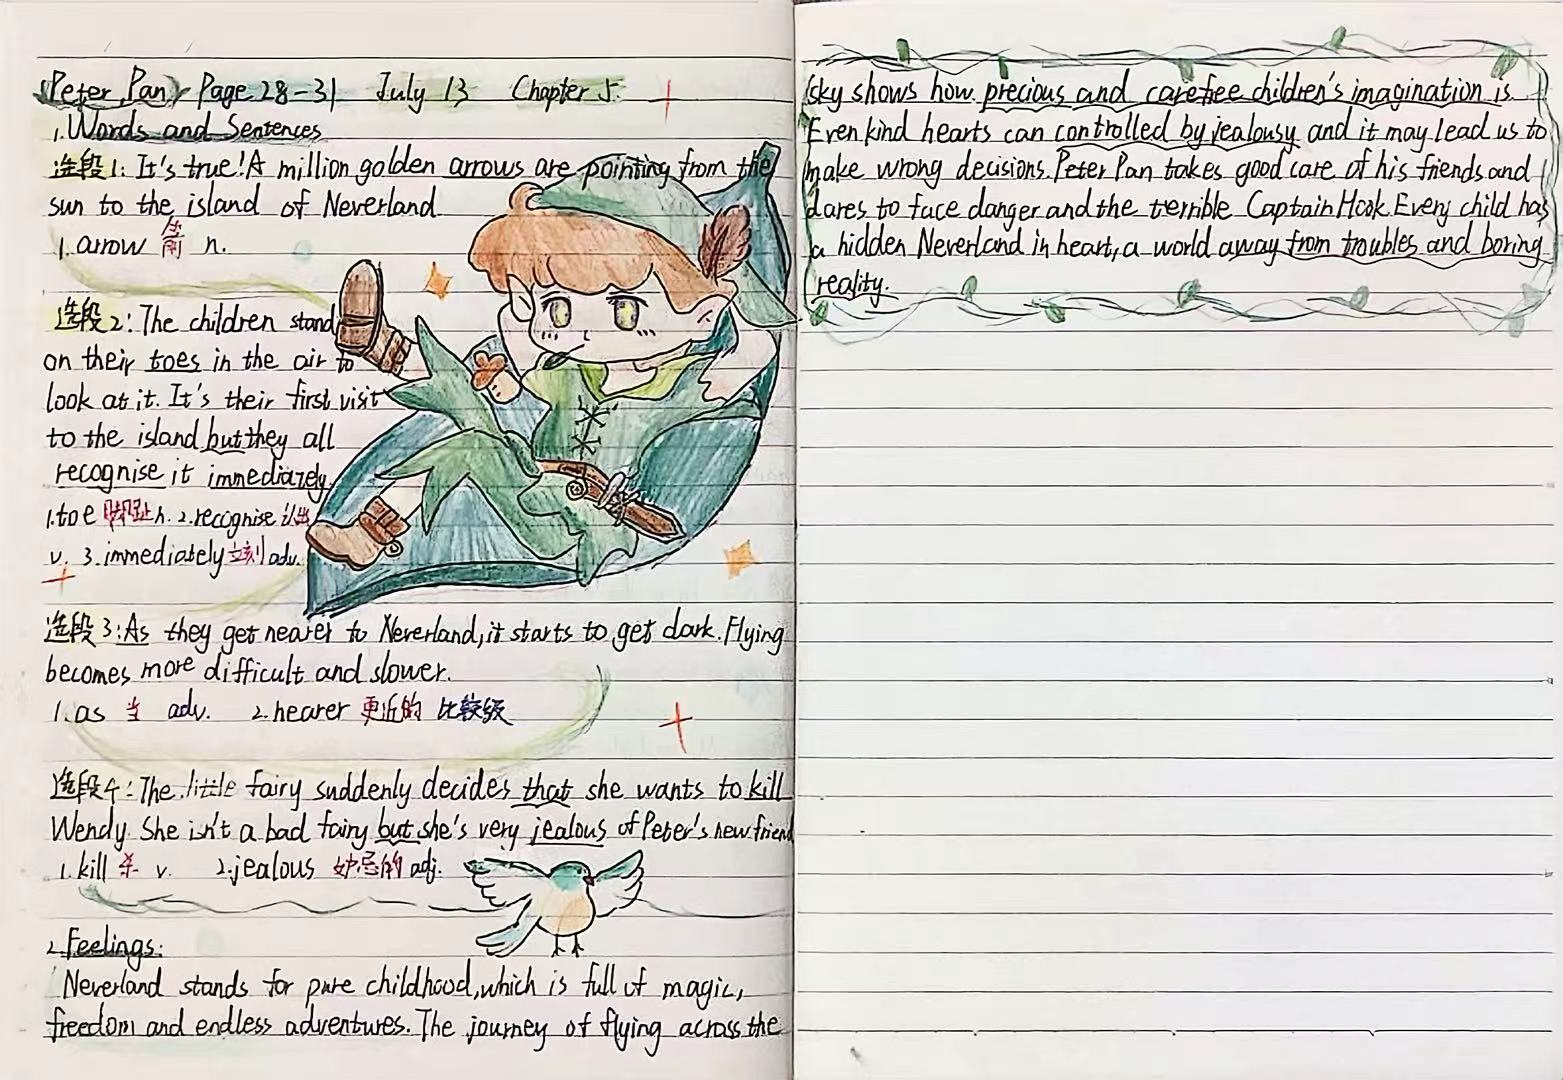 《Peter Pan》 Page 28-31 July 13 Chapter 5.
1. Words and Sentences
选段1: It's true! A million golden arrows are pointing from the
sun to the island of Neverland
1. arrow 箭 n.
选段2: The children stand
on their toes in the air to
look at it. It's their first visit
to the island but they all
recognise it immediately.
1. toe 脚趾 n. 2. recognise 认出
v. 3. immediately 立刻 adv.
选段3: As they get nearer to Neverland, it starts to get dark. Flying
becomes more difficult and slower.
1. as 当 adv. 2. nearer 更近的 比较级
选段4: The little fairy suddenly decides that she wants to kill
Wendy. She isn't a bad fairy but she's very jealous of Peter's new friend
1. kill 杀 v. 2. jealous 妒忌的 adj.
2. Feelings:
Neverland stands for pure childhood, which is full of magic,
freedom and endless adventures. The journey of flying across the
sky shows how precious and carefree children's imagination is.
Even kind hearts can controlled by jealousy and it may lead us to
make wrong decisions. Peter Pan takes good care of his friends and
dares to face danger and the terrible Captain Hook. Every child has
a hidden Neverland in heart, a world away from troubles and boring
reality.